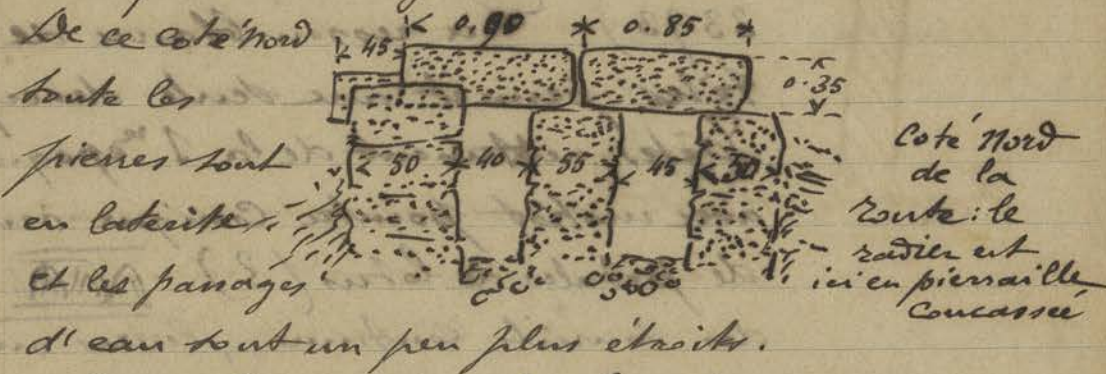 De ce coté Nord
toute les
pierres sont
en laterite
et les passages
d'eau sont un peu plus étroits.
45 0.90 0.85
0.35
50 40 55 45 50
Coté Nord
de la
route: le
radier est
ici en pierraille
concassée